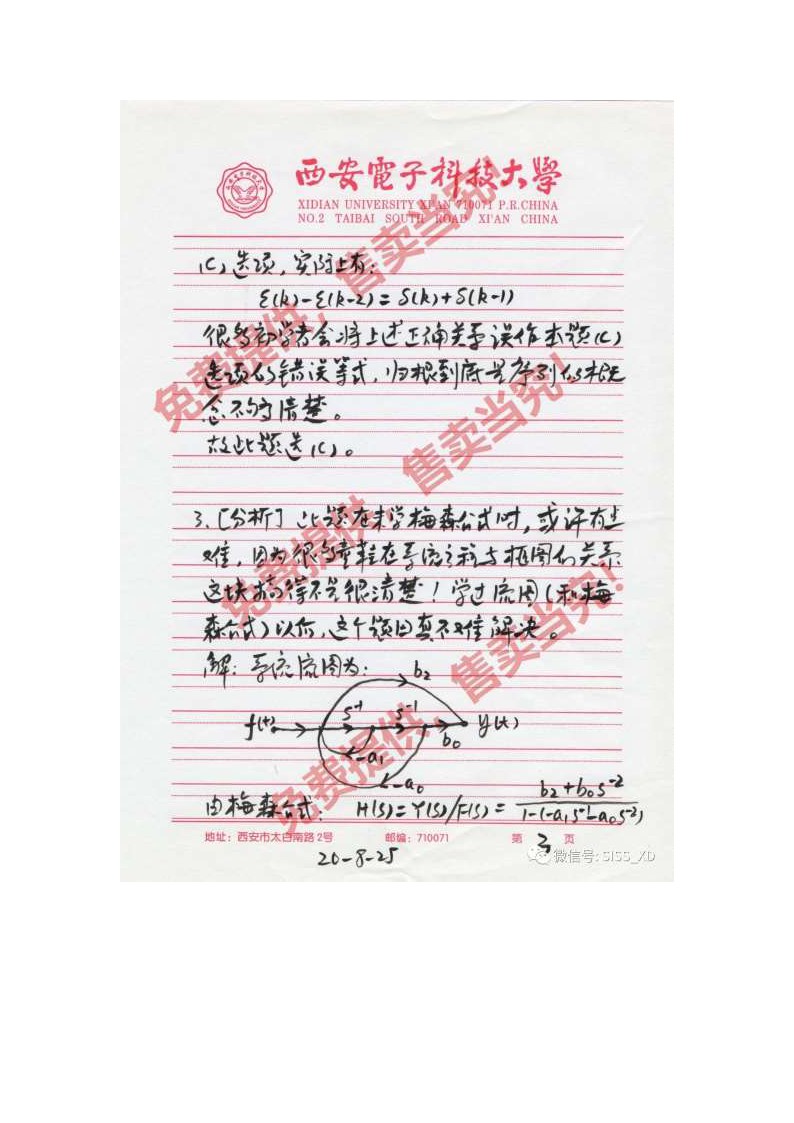 西安電子科技大學
XIDIAN UNIVERSITY XI'AN 710071 P.R.CHINA
NO.2 TAIBAI SOUTH ROAD XI'AN CHINA
(C)选项,实际上有:
ε(k)-ε(k-2)=δ(k)+δ(k-1)
很多初学者会将上述正确关系误作本题(C)
选项的错误等式,归根到底是序列的概
念不够清楚。
故此题选(C)。
3.[分析]此题在未学梅森公式时,或许有些
难,因为很多童鞋在系统之积与框图的关系
这块搞得不是很清楚!学过流图(和梅
森公式)以后,这个题目真不难解决。
解:系统流图为:
b₂
f(t) s⁻¹ s⁻¹ y(t)
-a₁ b₀
-a₀
由梅森公式: H(s)=Y(s)/F(s)= b₂+b₀s⁻² / 1-(-a₁s⁻¹-a₀s⁻²)
地址:西安市太白南路2号 邮编:710071 第 3 页
20-8-25
微信号: SISS_XD
免费提供,售卖当究!
免费提供,售卖当究!
免费提供,售卖当究!